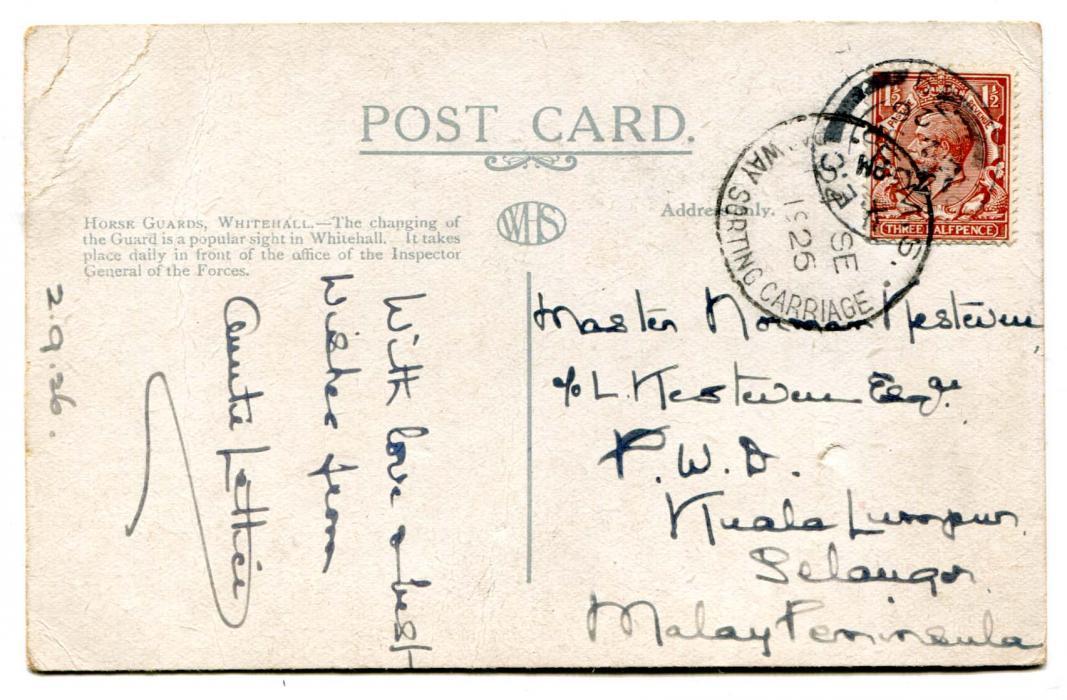 POST CARD.
HORSE GUARDS, WHITEHALL.—The changing of
the Guard is a popular sight in Whitehall. It takes
place daily in front of the office of the Inspector
General of the Forces.
WHS
Address Only.
1½ 1½
POSTAGE REVENUE
THREE HALFPENCE
F.M.S.
WAY SORTING CARRIAGE
SE
1925
PM
2.9.26.
With love & best
Wishes from
Auntie Lettice
Master Norman Kesteven
c/o L. Kesteven Esqre.
P.W.D.
Kuala Lumpur
Selangor
Malay Peninsula